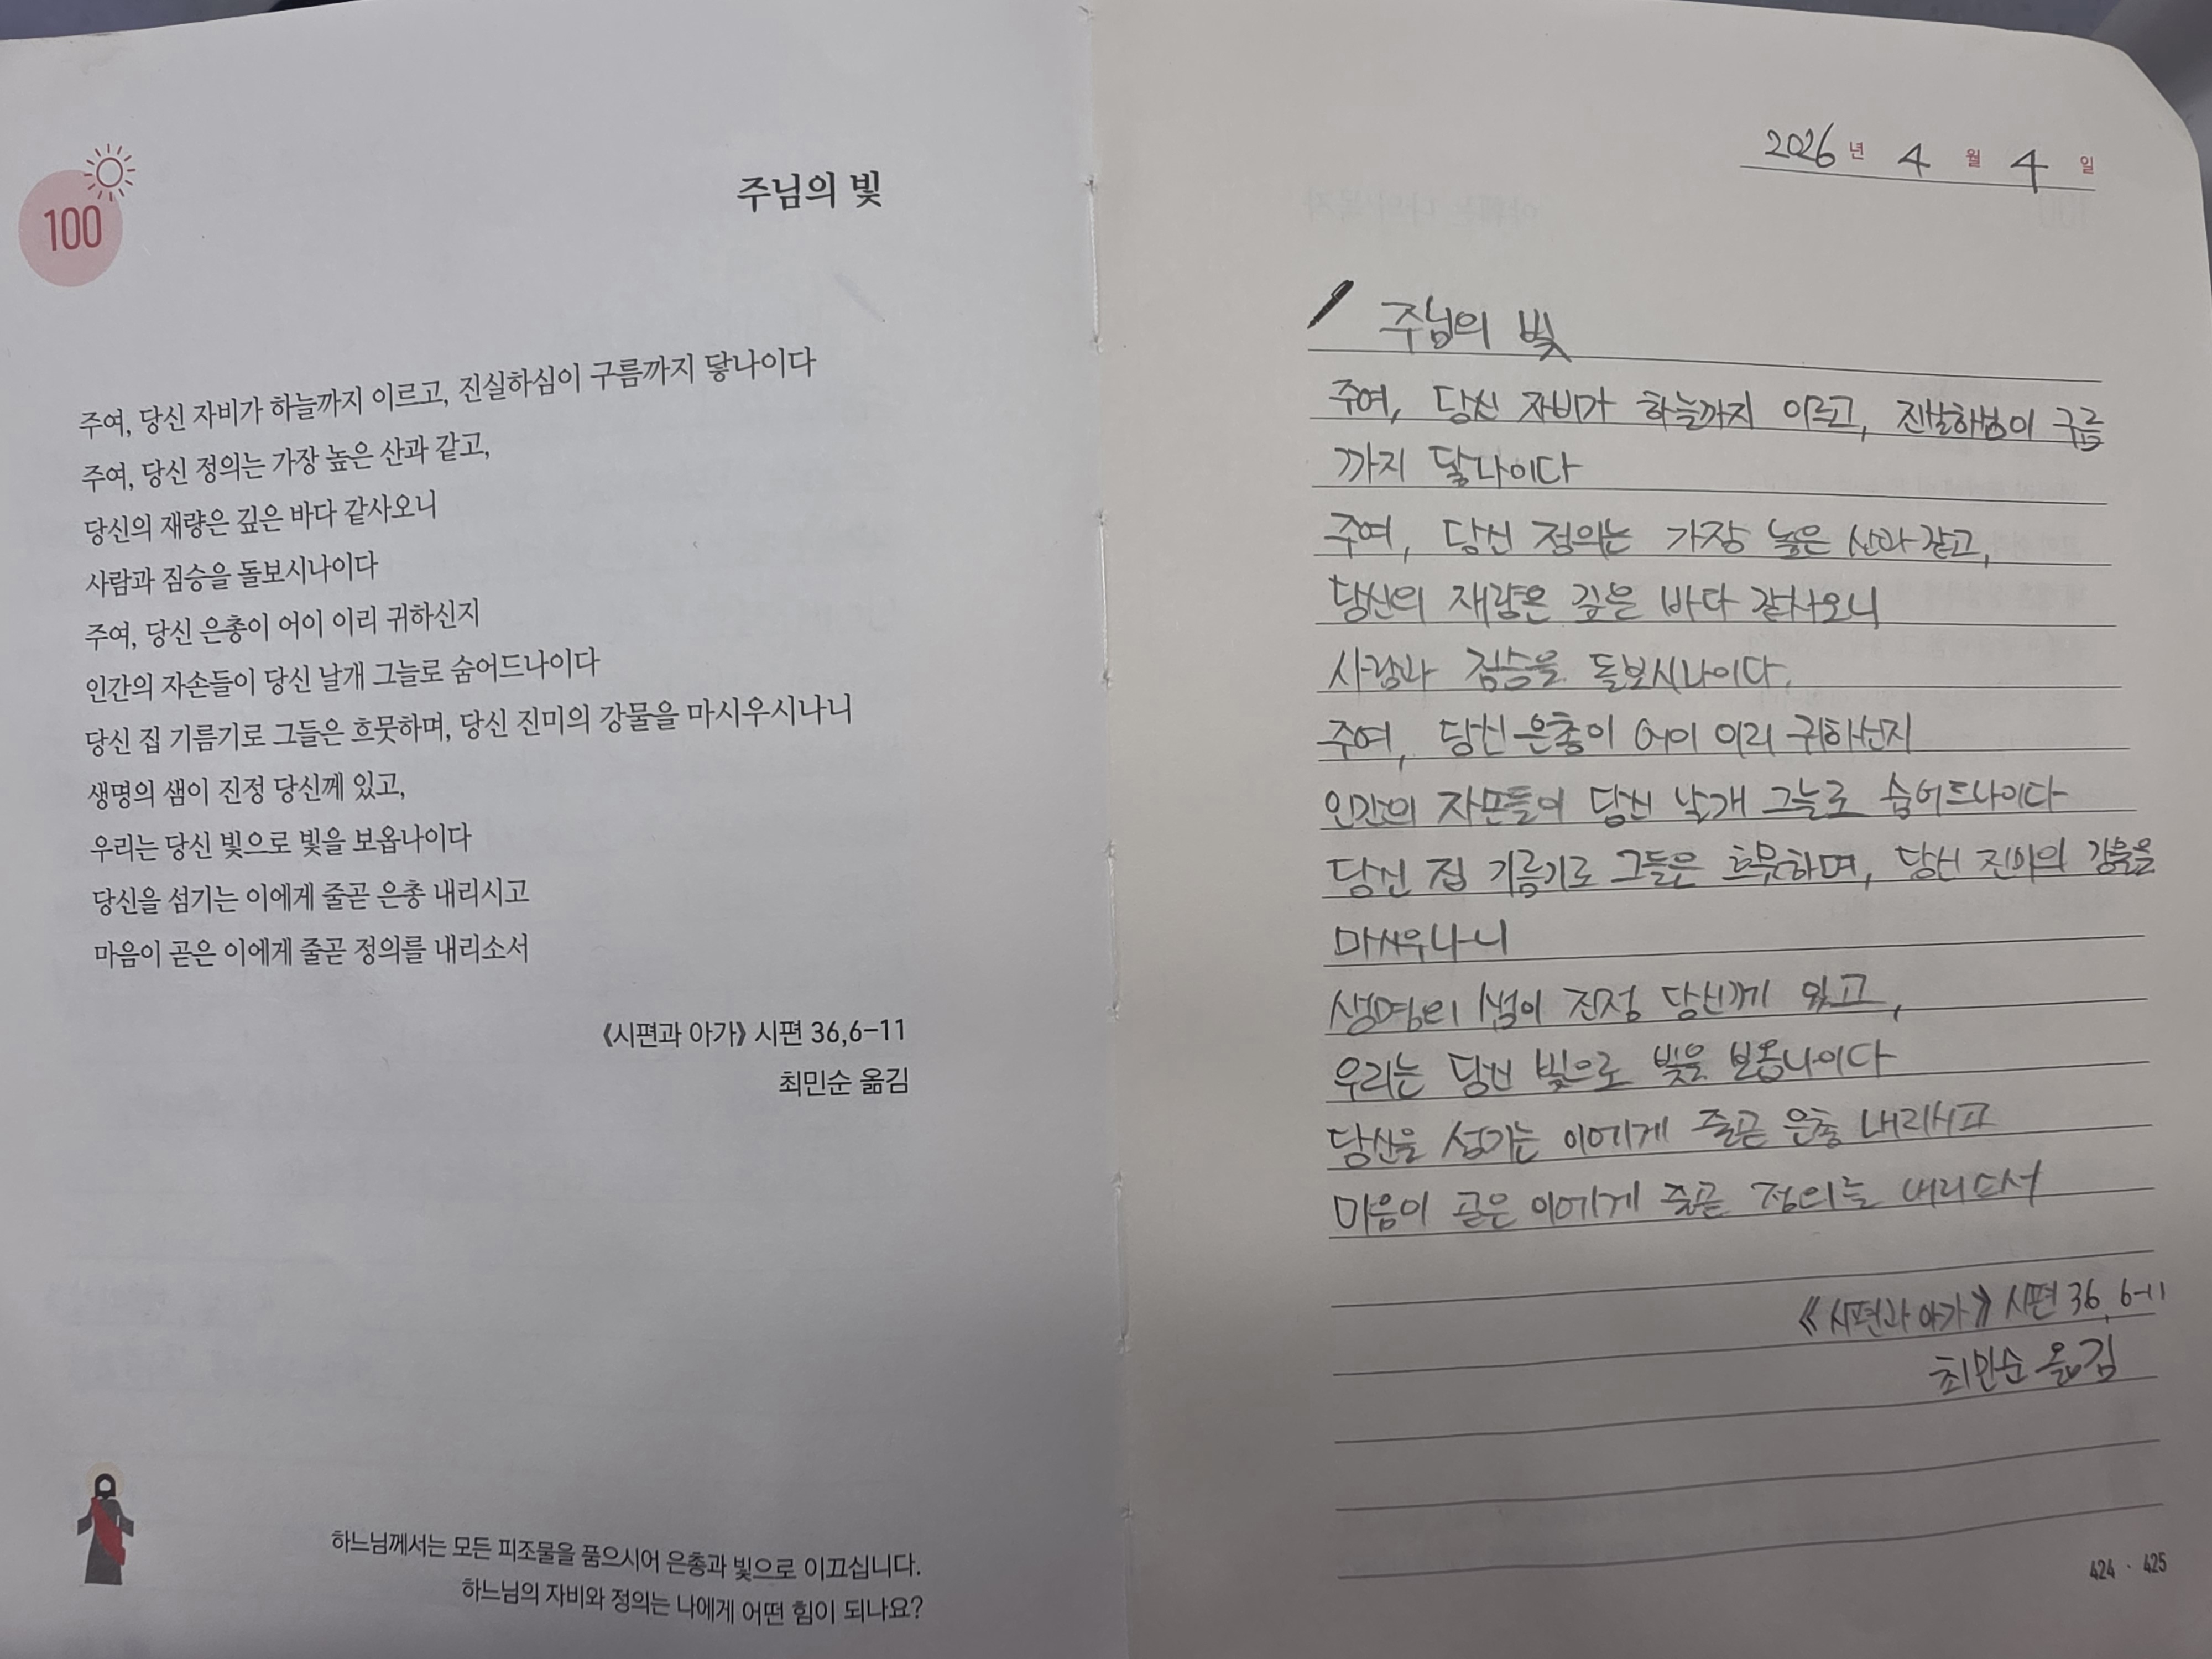 100
주님의 빛
주여, 당신 자비가 하늘까지 이르고, 진실하심이 구름까지 닿나이다
주여, 당신 정의는 가장 높은 산과 같고,
당신의 재량은 깊은 바다 같사오니
사람과 짐승을 돌보시나이다
주여, 당신 은총이 어이 이리 귀하신지
인간의 자손들이 당신 날개 그늘로 숨어드나이다
당신 집 기름기로 그들은 흐뭇하며, 당신 진미의 강물을 마시우시나니
생명의 샘이 진정 당신께 있고,
우리는 당신 빛으로 빛을 보옵나이다
당신을 섬기는 이에게 줄곧 은총 내리시고
마음이 곧은 이에게 줄곧 정의를 내리소서
《시편과 아가》 시편 36,6-11
최민순 옮김
하느님께서는 모든 피조물을 품으시어 은총과 빛으로 이끄십니다.
하느님의 자비와 정의는 나에게 어떤 힘이 되나요?
2026년 4월 4일
주님의 빛
주여, 당신 자비가 하늘까지 이르고, 진실하심이 구름
까지 닿나이다
주여, 당신 정의는 가장 높은 산과 같고,
당신의 재량은 깊은 바다 같사오니
사람과 짐승을 돌보시나이다.
주여, 당신 은총이 어이 이리 귀하신지
인간의 자손들이 당신 날개 그늘로 숨어드나이다
당신 집 기름기로 그들은 흐뭇하며, 당신 진미의 강물을
마시우나니
생명의 샘이 진정 당신께 있고,
우리는 당신 빛으로 빛을 보옵나이다
당신을 섬기는 이에게 줄곧 은총 내리시고
마음이 곧은 이에게 줄곧 정의를 내리소서
《시편과 아가》 시편 36, 6-11
최민순 옮김
424 · 425